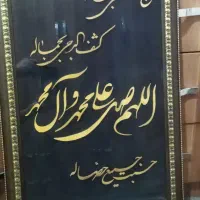 كشف الدجى بجماله
اللهم صل على محمد وآل محمد
حسنت جميع خصاله